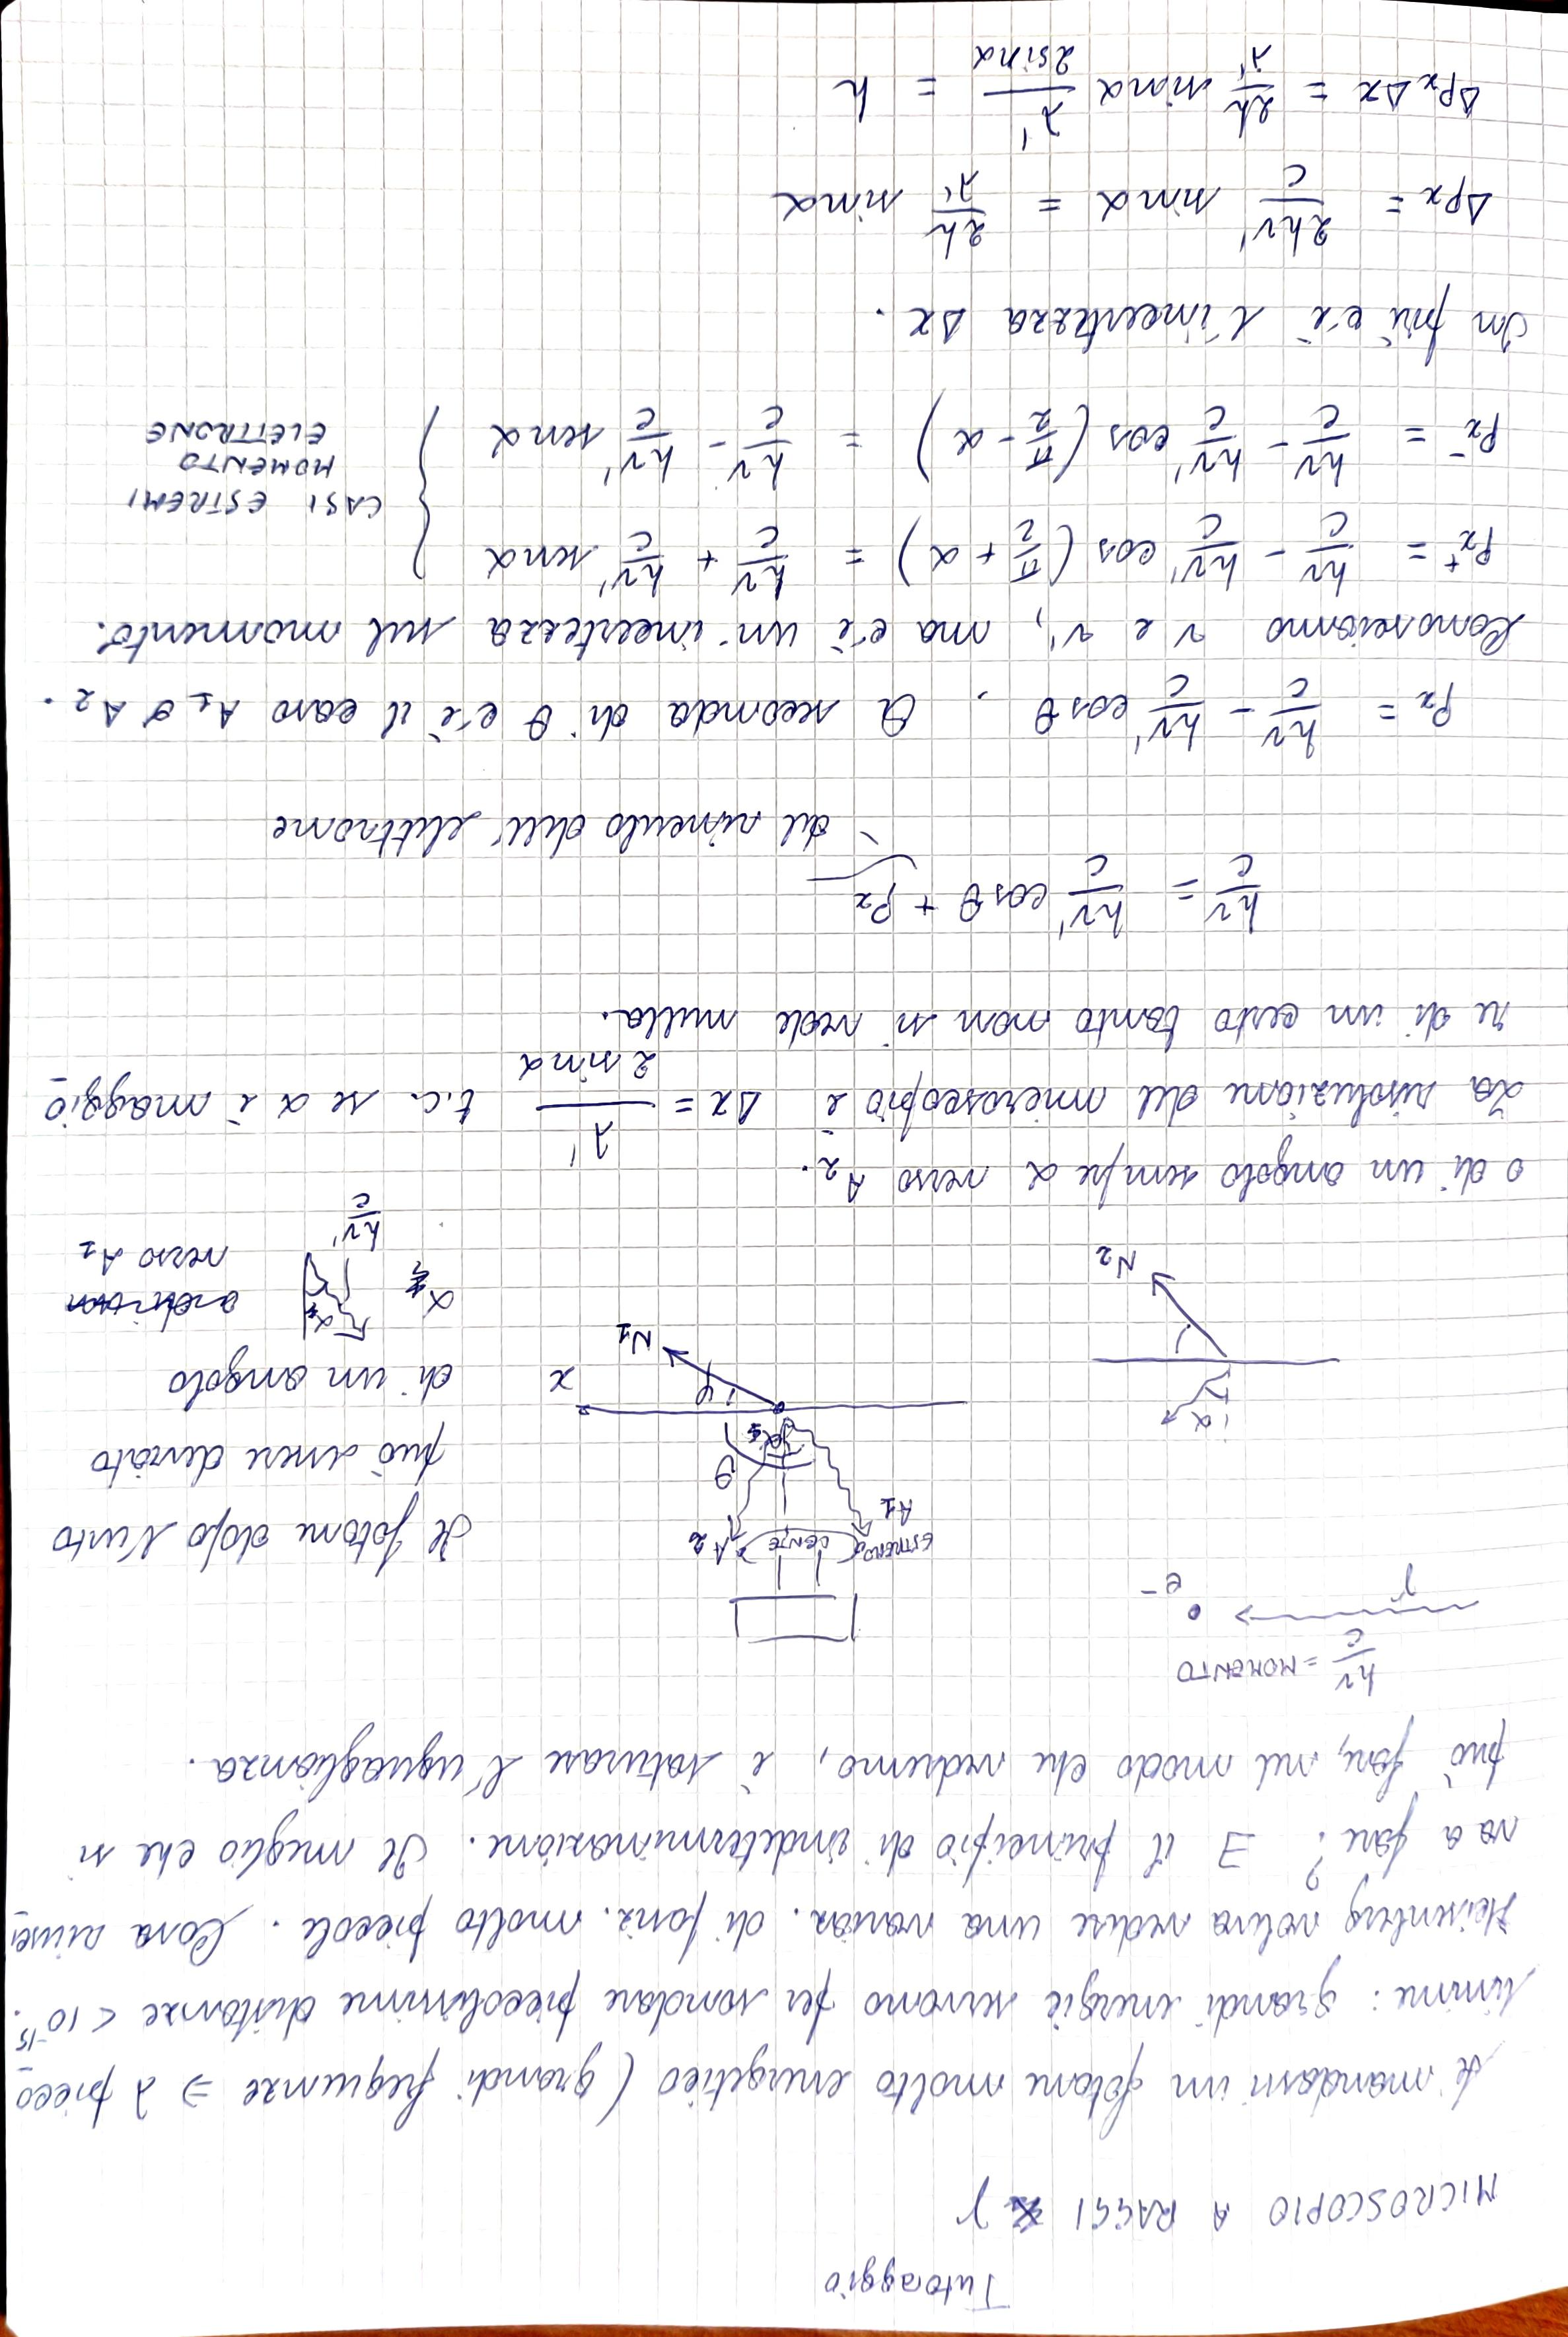 Tutoraggio
MICROSCOPIO A RAGGI γ
Si mandassi un fotone molto energetico (grandi frequenze ⇒ λ picco
lissime: grandi energie servono per sondare piccolissime distanze < 10⁻¹⁵.
Heisenberg voleva vedere una variaz. di posiz. molto piccole. Cosa riusci
va a fare? ∃ il principio di indeterminazione. Il meglio che si
può fare, nel modo che vedremo, è saturare l'uguaglianza.
hν/c = MOMENTO
γ
e⁻
ESTREMO
LENTE
A1
A2
θ
α
φ
x
N1
α
N2
Il fotone dopo l'urto
può essere deviato
di un angolo
α
α
verso A1
hν'/c
o di un angolo sempre α verso A2.
La risoluzione del microscopio è Δx = λ'/(2 sinα) t.c. se α è maggio
re di un certo tanto non si vede nulla.
hν/c = hν'/c cosθ + Px
del rinculo dell'elettrone
Px = hν/c - hν'/c cosθ, A seconda di θ c'è il caso A1 o A2.
Conosciamo ν e ν', ma c'è un'incertezza sul momento.
Px⁺ = hν/c - hν'/c cos(π/2 + α) = hν/c + hν'/c senα
Px⁻ = hν/c - hν'/c cos(π/2 - α) = hν/c - hν'/c senα
CASI ESTREMI
MOMENTO
ELETTRONE
In più c'è l'incertezza Δx.
ΔPx = 2hν'/c sinα = 2h/λ' sinα
ΔPxΔx = 2h/λ' sinα λ'/(2sinα) = h